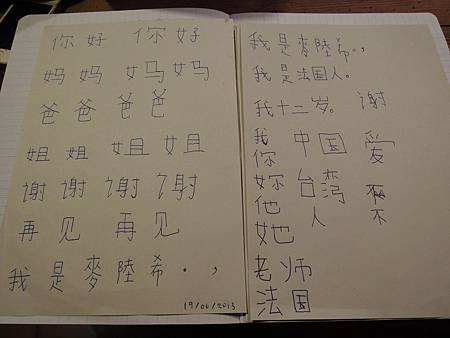 你好 你好
妈妈 妈妈
爸爸 爸爸
姐姐 姐姐
谢谢 谢谢
再见 再见
我是麥陸希.,
19/06/2013
我是麥陸希.,
我是法国人。
我十二岁。 谢
我 中国 爱
你
妳 台湾
他 人 不
她
老师
法国